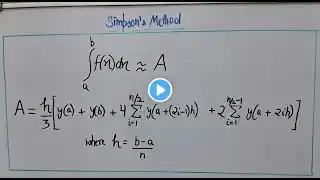 Simpson's Method
∫_a^b f(x)dx ≈ A
A = h/3 [y(a) + y(b) + 4 ∑_{i=1}^{n/2} y(a+(2i-1)h) + 2 ∑_{i=1}^{n/2-1} y(a+2ih)]
where h = b-a/n